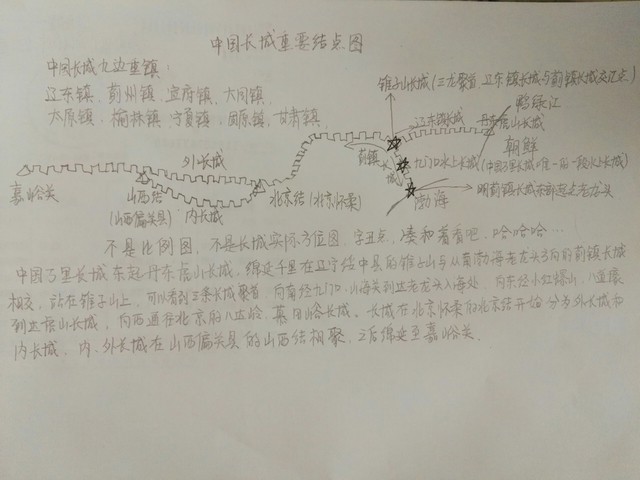 中国长城重要结点图
中国长城九边重镇:
辽东镇、蓟州镇、宣府镇、大同镇、
太原镇、榆林镇、宁夏镇、固原镇、甘肃镇
锥子山长城(三龙聚首,辽东镇长城与蓟镇长城交汇点)
鸭绿江
辽东镇长城
丹东虎山长城
朝鲜
蓟镇
长城
九门口水上长城(中国万里长城唯一的一段水上长城)
渤海
明蓟镇长城东部起点老龙头
外长城
嘉峪关
山西结
(山西偏关县)
内长城
北京结(北京怀柔)
不是比例图,不是长城实际方位图,字丑点,凑和着看吧,哈哈哈…
中国万里长城东起丹东虎山长城,绵延千里在辽宁绥中县的锥子山与从南渤海老龙头方向的蓟镇长城
相交,站在锥子山上,可以看到三条长城聚首,向南经九门口,山海关到达老龙头入海处,向东经小虹螺山,
到达虎山长城,向西通往北京的八达岭,慕田峪长城。长城在北京怀柔的北京结开始分为外长城和
内长城,内、外长城在山西偏关县的山西结相聚,之后绵延至嘉峪关。